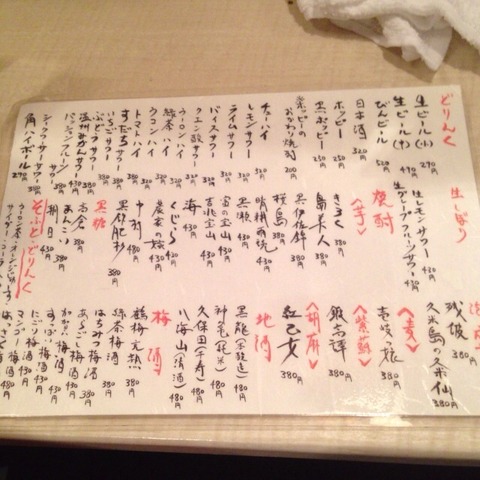 どりんく
生ビール(小) 290円
生ビール(中) 490円
びんビール 520円
日本酒 320円
ホッピー 350円
黒ホッピー 350円
※ホッピーのおかわり焼酎 200円
チューハイ 320円
レモンサワー 320円
ライムサワー 320円
バイスサワー 320円
クエン酸サワー
ウーロンハイ
緑茶ハイ
ウコンハイ
トマトハイ
すだちサワー
いちごサワー 380円
ぶどうサワー 380円
温州みかんサワー 430円
パッションフルーツサワー 430円
シークワーサーサワー
角ハイボール 390円
生しぼり
生レモンサワー 430円
生グレープフルーツサワー 430円
焼酎
<芋>
きろく 380円
島美人 380円
黒伊佐錦 380円
桜島 380円
晴耕雨読 430円
黒瀬 380円
富の宝山 430円
吉兆宝山 430円
海 430円
くじら 430円
農家の嫁 430円
中村
黒糖
高倉 380円
あんこい 380円
朝日 430円
そふとどりんく
残波 380円
久米島の久米仙 380円
<麦>
壱岐っ娘 380円
<紫蘇>
鍛高譚 380円
<胡麻>
紅乙女 380円
地酒
久保田(千寿) 480円
八海山(清酒) 480円
梅酒
緑茶梅酒 380円
はちみつ梅酒 380円
あらごし梅酒
にごり梅酒
マンゴー梅酒 480円